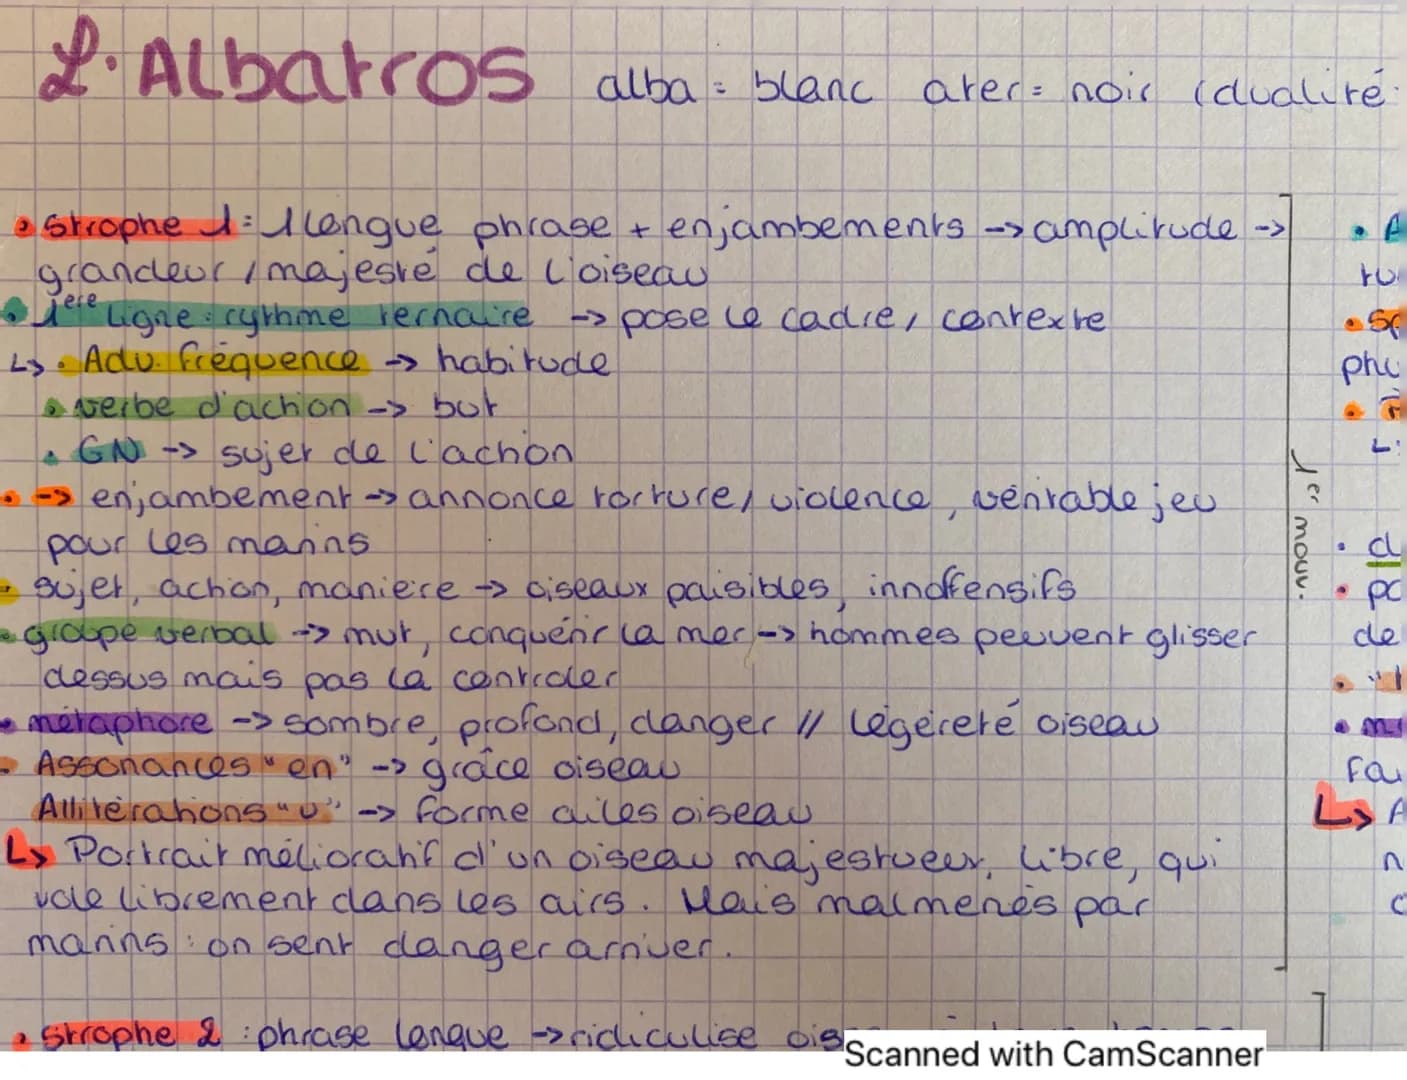 L'Albatros alba = blanc ater = noir (dualité
• Strophe 1 : 1 longue phrase + enjambements -> amplitude ->
grandeur / majesté de l'oiseau
• 1ère ligne : rythme ternaire -> pose le cadre, contexte
↳ • Adv. fréquence -> habitude
• verbe d'action -> but
• GN -> sujet de l'action
• -> enjambement -> annonce torture / violence, véritable jeu
pour les marins
• sujet, action, manière -> oiseaux paisibles, innoffensifs
• groupe verbal -> mvt, conquérir la mer -> hommes peuvent glisser
dessus mais pas la controler
• métaphore -> sombre, profond, danger // légereté oiseau
• Assonances "en" -> grâce oiseau
Allitérations "v" -> forme ailes oiseau
↳ Portrait mélioratif d'un oiseau majestueux, libre, qui
vole librement dans les airs. Mais malmenés par
marins : on sent danger arriver.
1er mouv.
• Strophe 2 : phrase longue -> ridiculise
Scanned with CamScanner
de